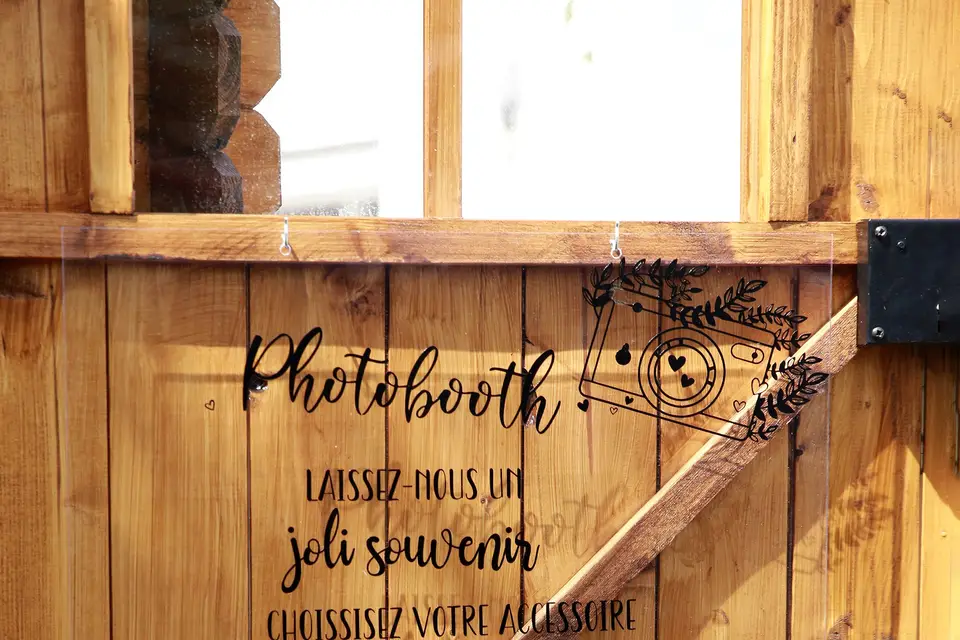 Photobooth
LAISSEZ-NOUS UN
joli souvenir
CHOISSISEZ VOTRE ACCESSOIRE